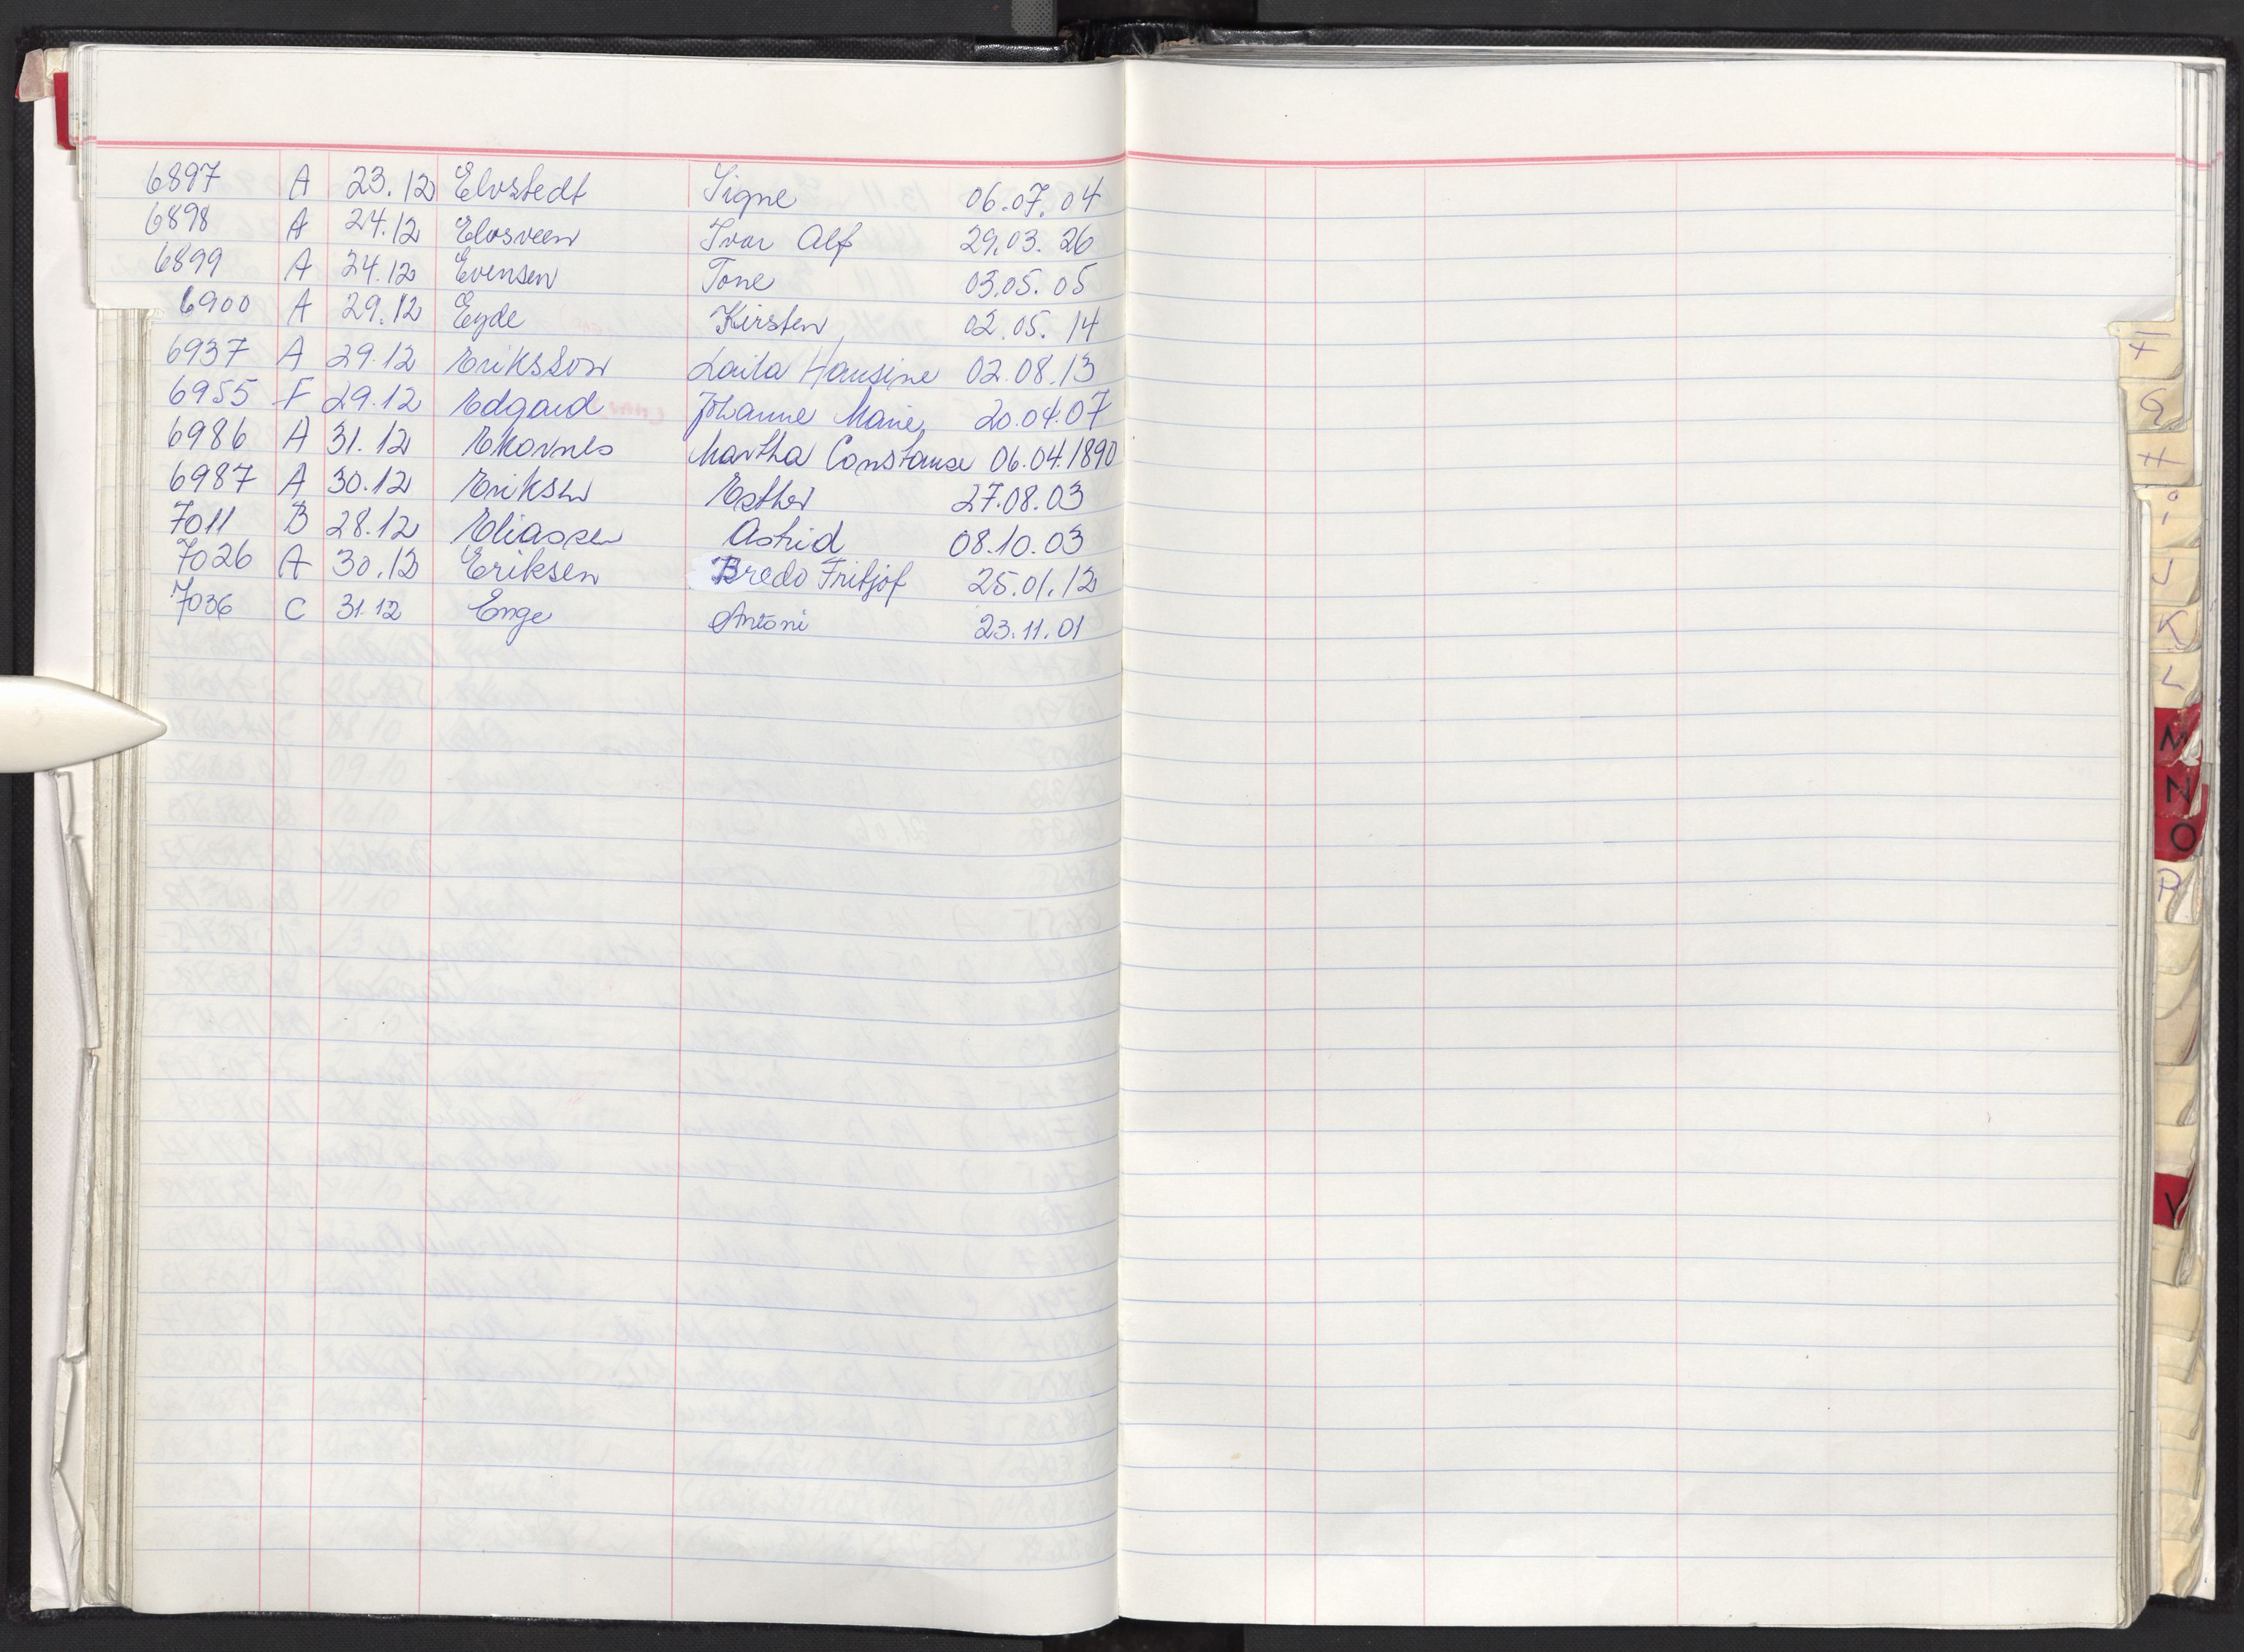 6897 A 23.12 Elvstedt Signe 06.07.04
6898 A 24.12 Elvsveen Ivar Alf 29.03.26
6899 A 24.12 Evensen Tone 03.05.05
6900 A 29.12 Eyde Kirsten 02.05.14
6937 A 29.12 Eriksson Laila Hansine 02.08.13
6955 F 29.12 Edgard Johanne Marie 20.04.07
6986 A 31.12 Ekornes Martha Constanse 06.04.1890
6987 A 30.12 Eriksen Esther 27.08.03
7011 B 28.12 Eliassen Astrid 08.10.03
7026 A 30.12 Eriksen Bredo Fritjof 25.01.12
7036 C 31.12 Enge Antoni 23.11.01
F
G
H
I
J
K
L
M
N
O
P
V